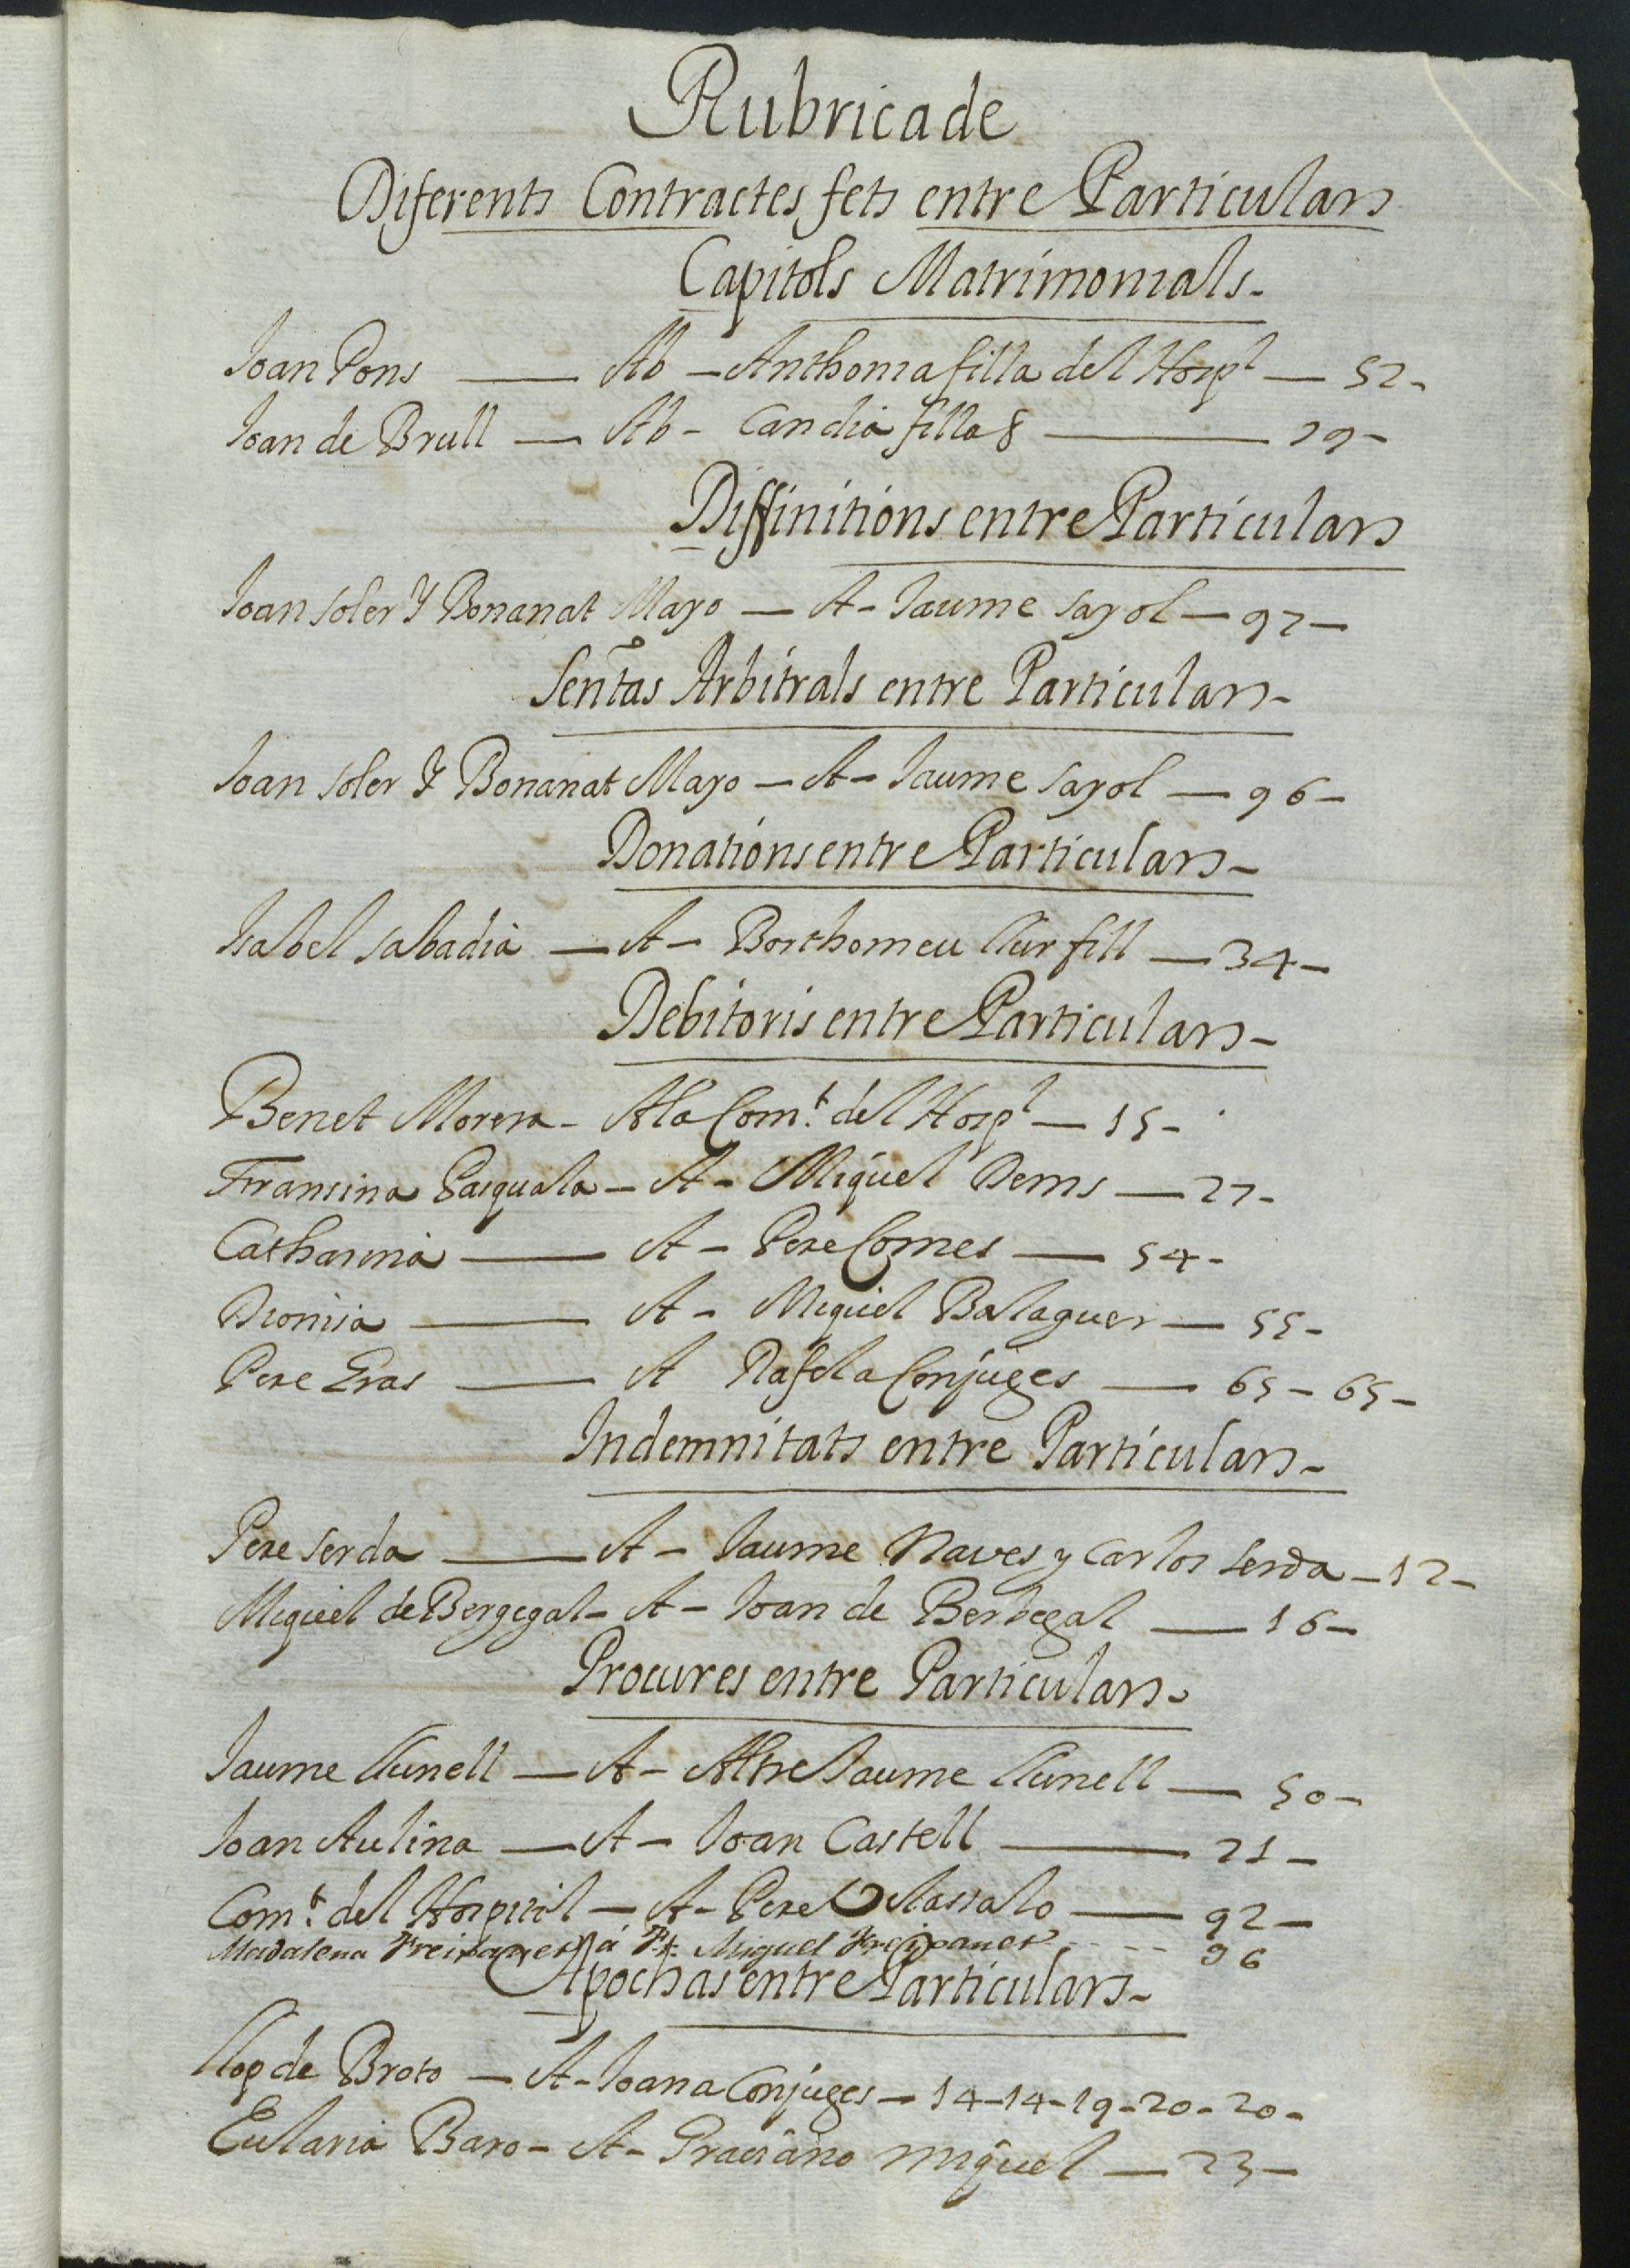 Rubrica de
Diferents Contractes fets entre Particulars
Capitols Matrimonials-
Joan Pons — Ab — Anthonia filla del Hospl — 52-
Joan de Brull — Ab - Candia filla & — 29-
Diffinitions entre Particulars
Joan soler Y Bonanat Mayo — A - Jaume sayol — 97 —
Sentas Arbitrals entre Particulars-
Joan soler Y Bonanat Mayo — A — Jaume sayol — 96 —
Donations entre Particulars-
Isabel sabadia — A — Borthomeu llur fill — 34 —
Debitoris entre Particulars-
Benet Morera - A la Comt. del Hospl — 15 -
Fransina Pasquala — A - Miquel Denis — 27-
Catharina — A — Pere Comes — 54 -
Dionisia — A - Miquel Balaguer — 55 -
Pere Eras — A Rafela Conjuges — 65 — 65 —
Indemnitats entre Particulars-
Pere serda — A — Jaume Naves y Carlos serda — 12 -
Miquel de Bergegal - A — Joan de Berbegal — 16 —
Procures entre Particulars-
Jaume llunell — A — Altre Jaume llunell — 50 —
Joan Aulina — A — Joan Castell — 21 —
Comt. del Hospital — A - Pere — 92 —
Madalena Freixanet á Miquel Freixanet - - - - 96
Apochas entre Particulars-
llop de Broto — A - Joana Conjuges — 14-14-19-20-20-
Eularia Baro - A — Graciano Miquel — 23 —